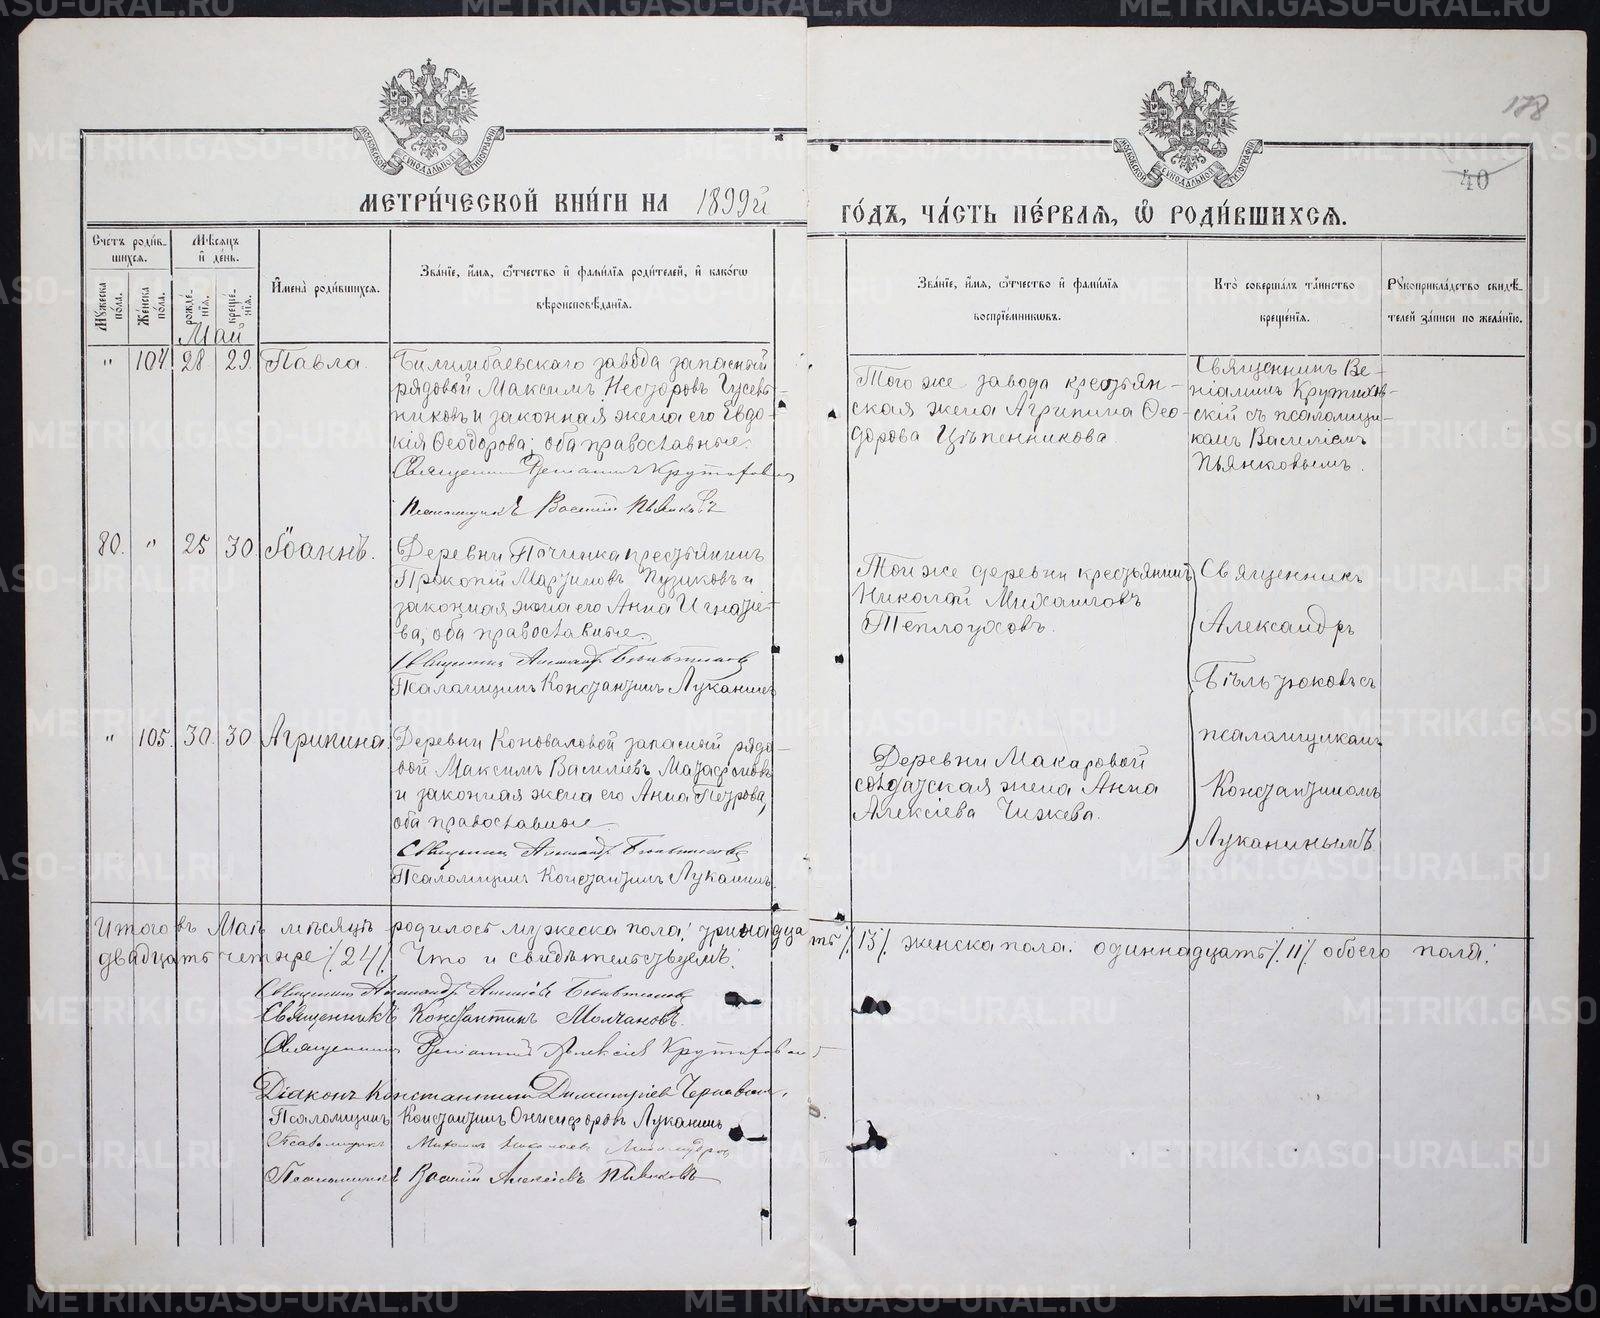 178
40
МЕТРИ́ЧЕСКОЙ КНИ́ГИ НА 1899й
ГО́ДЪ, ЧА́СТЬ ПЕ́РВАЯ, Ѡ РОДИ́ВШИХСЯ.
Сче́тъ роди́в-
шихся.
Мѣ́сяцъ
и́ де́нь.
И҆мена̀ роди́вшихся.
Зва́нїе, и҆́мѧ, ѻ҆́тчество и҆ фамилїѧ роди́телей, и҆ како́гѡ
вѣроисповѣ́данїѧ.
Зва́нїе, и҆́мѧ, ѻ҆́тчество и҆ фами́лїѧ
воспрїе́мниковъ.
Кто̀ соверша́лъ та́инство
креще́нїѧ.
Рꙋкоприкла́дство свидѣ́-
телей за́писи по жела́нїю.
Мꙋ́жеска
по́ла.
Же́нска
по́ла.
рожде́-
нїѧ.
креще́-
нїѧ.
Май
" 104 28 29. Павла.
Билимбаевскаго завода запасный
рядовой Максимъ Несторовъ Гусель-
никовъ и законная жена его Евдо-
кія Ѳеодорова; оба православные.
Священникъ Веніаминъ Крутиховскій
Псаломщикъ Василій Пьянковъ
Того же завода крестьян-
ская жена Агрипина Ѳео-
дорова Цѣпенникова.
Священникъ Ве-
ніаминъ Крутихов-
скій съ псаломщи-
комъ Василіемъ
Пьянковымъ.
80. " 25 30 Іоаннъ.
Деревни Починка крестьянинъ
Прокопій Мартиновъ Пузиковъ и
законная жена его Анна Игнатіе-
ва, оба православные.
Священникъ Александръ
Псаломщикъ Константинъ Луканинъ
Той же деревни крестьянинъ
Николай Михаиловъ
Теплоуховъ.
Священникъ
Александръ
Бѣльтюковъ съ
псаломщикомъ
Константиномъ
Луканинымъ
" 105. 30. 30 Агрипина.
Деревни Коноваловой запасный рядо-
вой Максимъ Василіевъ Матафоновъ
и законная жена его Анна Петрова,
оба православные.
Священникъ Александръ
Псаломщикъ Константинъ Луканинъ.
Деревни Макаровой
солдатская жена Анна
Алексіева Чижева.
Итого въ Маѣ мѣсяцѣ родилось мужеска пола: тринадцать /.13/. женска пола: одиннадцать /.11/. обоего пола:
двадцать четыре /.24/. Что и свидѣтельствуемъ:
Священникъ Александръ Алексіевъ
Священникъ Константинъ Молчановъ.
Священникъ Веніаминъ Алексіевъ Крутиховскій
Діаконъ Константинъ Димитріевъ
Псаломщикъ Константинъ Онисифоровъ Луканинъ
Псаломщикъ Михаилъ Николаевъ
Псаломщикъ Василій Алексіевъ Пьянковъ
METRIKI.GASO-URAL.RU